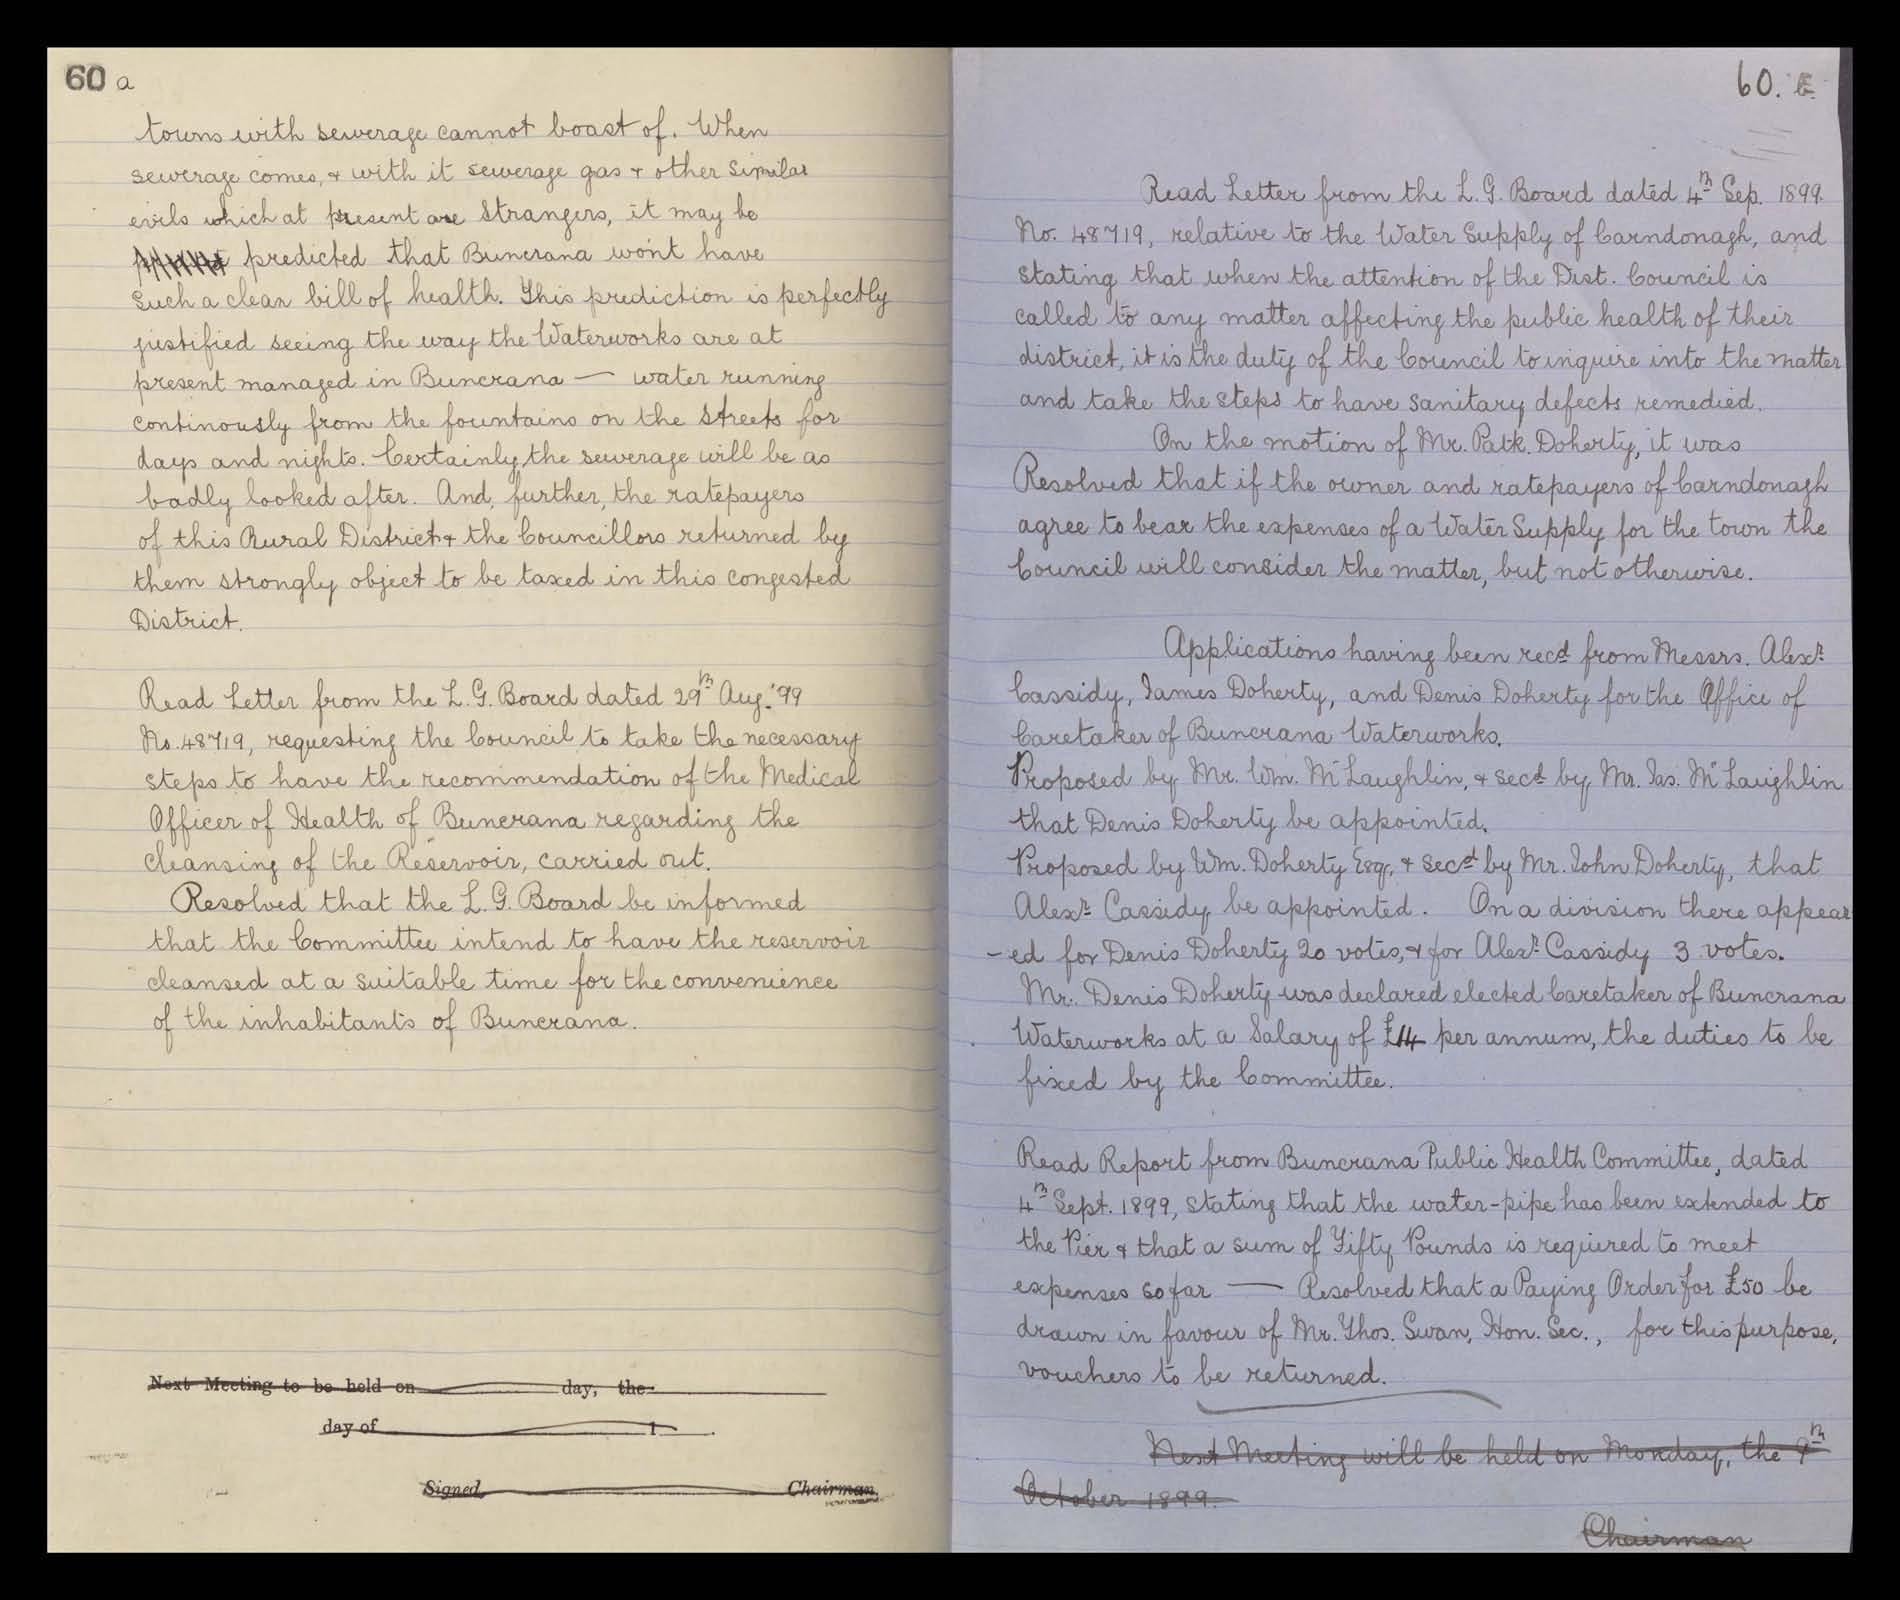 60 a
towns with sewerage cannot boast of. When
sewerage comes, & with it sewerage gas & other similar
evils which at present are strangers, it may be
predicted that Buncrana won't have
such a clean bill of health. This prediction is perfectly
justified seeing the way the Waterworks are at
present managed in Buncrana — water running
continously from the fountains on the streets for
days and nights. Certainly, the sewerage will be as
badly looked after. And, further, the ratepayers
of this Rural District & the Councillors returned by
them strongly object to be taxed in this congested
District.
Read Letter from the L. G. Board dated 29th Aug. '99
No. 48719, requesting the Council to take the necessary
steps to have the recommendation of the Medical
Officer of Health of Buncrana regarding the
cleansing of the Reservoir, carried out.
Resolved that the L. G. Board be informed
that the Committee intend to have the reservoir
cleansed at a suitable time for the convenience
of the inhabitants of Buncrana.
Next Meeting to be held on day, the
day of 1 .
Signed Chairman.
60. b
Read Letter from the L. G. Board dated 4th Sep. 1899.
No. 48719, relative to the Water Supply of Carndonagh, and
stating that when the attention of the Dist. Council is
called to any matter affecting the public health of their
district, it is the duty of the Council to inquire into the matter
and take the steps to have sanitary defects remedied.
On the motion of Mr. Patk. Doherty, it was
Resolved that if the owner and ratepayers of Carndonagh
agree to bear the expenses of a Water Supply for the town the
Council will consider the matter, but not otherwise.
Applications having been recd from Messrs. Alexr.
Cassidy, James Doherty, and Denis Doherty for the Office of
Caretaker of Buncrana Waterworks.
Proposed by Mr. Wm. McLaughlin, & secd by Mr. Jas. McLaughlin
that Denis Doherty be appointed.
Proposed by Wm. Doherty Esq., & secd by Mr. John Doherty, that
Alexr. Cassidy be appointed. On a division there appear
-ed for Denis Doherty 20 votes, & for Alexr. Cassidy 3 votes.
Mr. Denis Doherty was declared elected Caretaker of Buncrana
Waterworks at a Salary of £14 per annum, the duties to be
fixed by the Committee.
Read Report from Buncrana Public Health Committee, dated
4th Sept. 1899, stating that the water-pipe has been extended to
the Pier & that a sum of Fifty Pounds is required to meet
expenses so far — Resolved that a Paying Order for £50 be
drawn in favour of Mr. Thos. Swan, Hon. Sec., for this purpose,
vouchers to be returned.
Next Meeting will be held on Monday, the 9th
October 1899.
Chairman